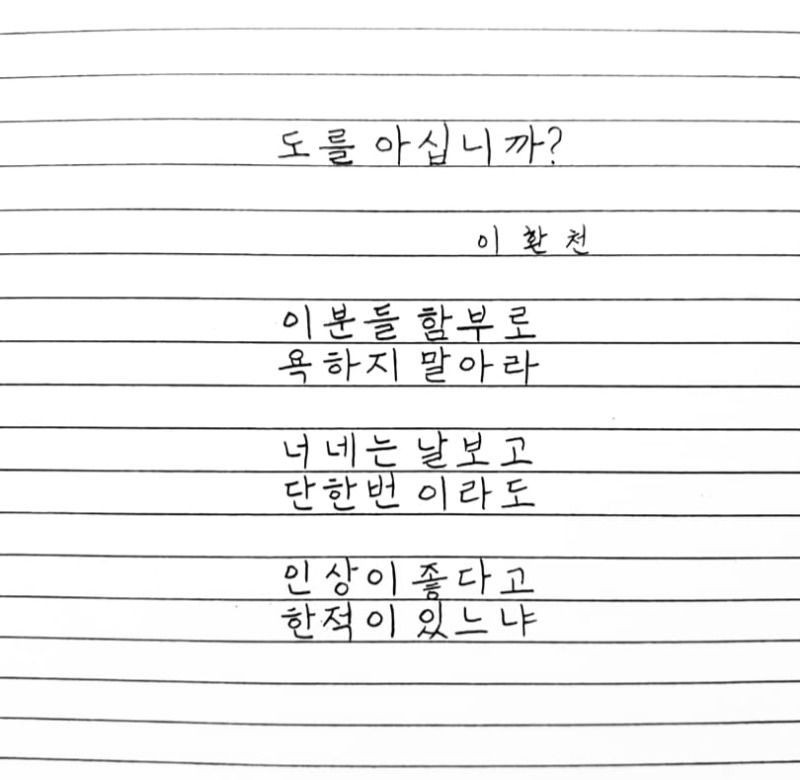 도를 아십니까?
이환천
이분들 함부로
욕하지 말아라
너네는 날보고
단한번 이라도
인상이 좋다고
한적이 있느냐